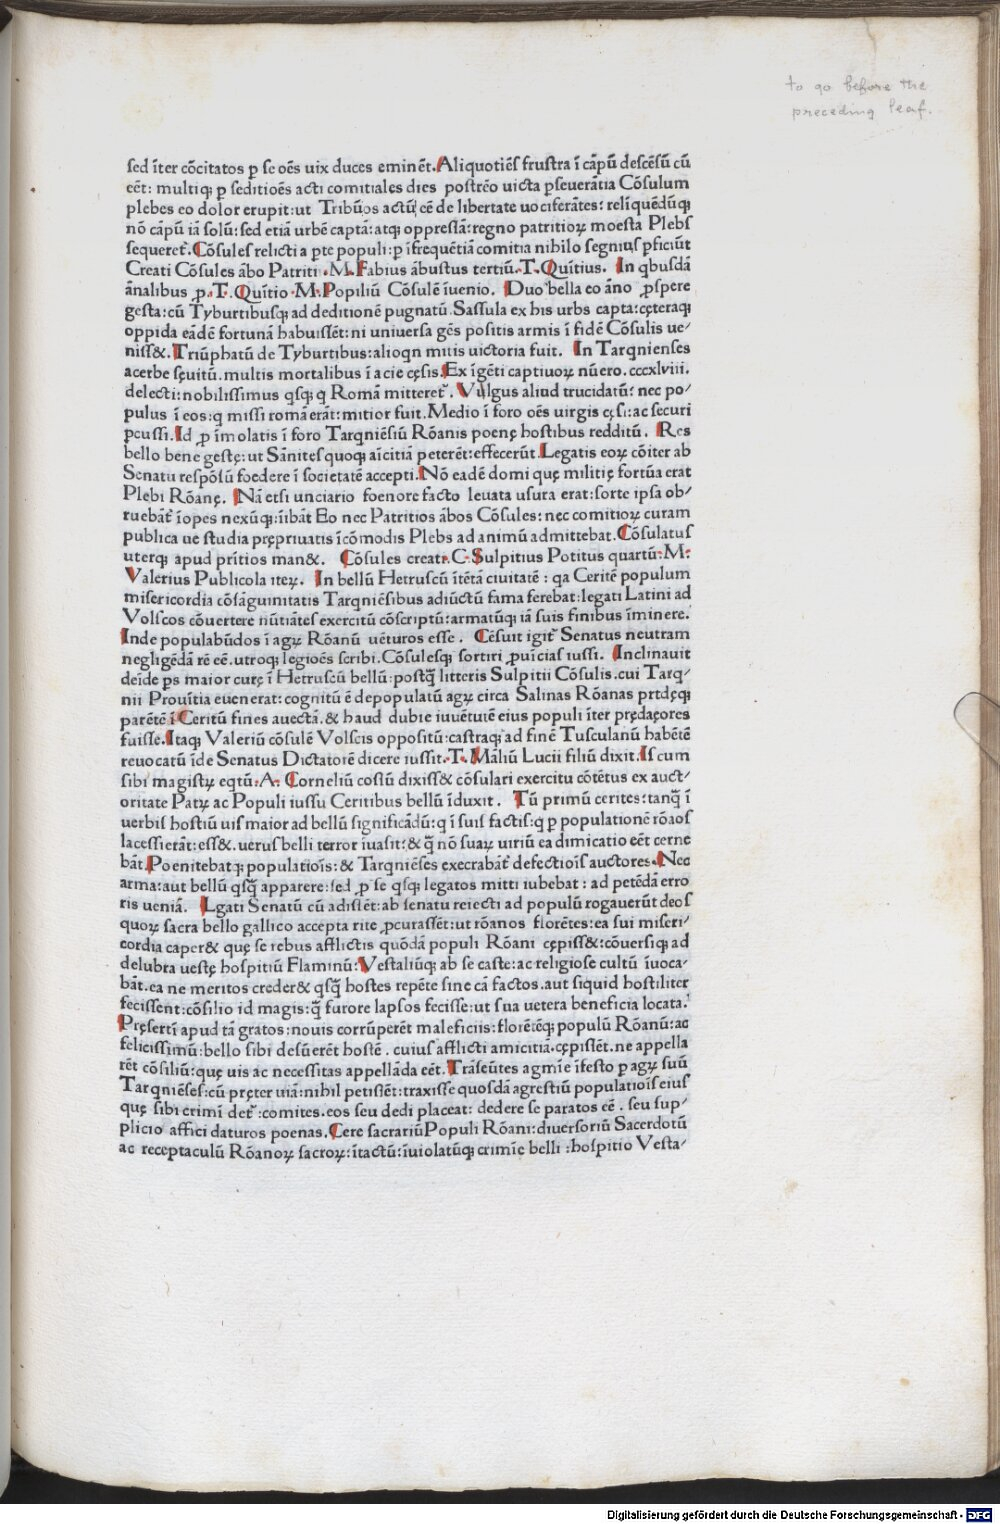 to go before the
preceding leaf.
sed īter cōcitatos ꝑ se oēs uix duces eminēt. Aliquotiēs frustra ī cāpū descēsū cū
eēt: multiqꝫ ꝑ seditioēs acti comitiales dies postrēo uicta ꝑseuerātia Cōsulum
plebes eo dolor erupit: ut Tribūos actū cē de libertate uociferātes: relīquēdūqꝫ
nō cāpū iā solū: sed etiā urbē captā: atqꝫ oppressā: regno patritioꝝ moesta Plebs
sequeret᷑. Cōsules relicti a ꝑte populi: ꝑ īfrequētiā comitia nihilo segnius ꝑficiūt
Creati Cōsules ābo Patriti .M. Fabius ābustus tertiū .T. Quītius. In qbusdā
ānalibus ꝓ .T. Quītio .M. Popiliū Cōsulē iuenio. Duo bella eo āno ꝓspere
gesta: cū Tyburtibusqꝫ ad deditionē pugnatū Sassula ex his urbs capta: cęteraqꝫ
oppida eādē fortunā habuissēt: ni uniuersa gēs positis armis ī fidē Cōsulis ue⸗
niss&. Triūphatū de Tyburtibus: alioqn mitis uictoria fuit. In Tarqnienses
acerbe sęuitū. multis mortalibus ī acie cęsis. Ex īgēti captiuoꝝ nūero. cccxlviii.
delecti: nobilissimus qsqꝫ q Romā mitteret᷑. Vulgus aliud trucidatū: nec po⸗
pulus ī eos: q missi romā erāt: mitior fuit. Medio ī foro oēs uirgis cęsi: ac securi
ꝑcussi. Id ꝓ īmolatis ī foro Tarqniēsiū Rōanis poenę hostibus redditū. Res
bello bene gestę: ut Sānites quoqꝫ aīcitiā peterēt: effecerūt. Legatis eoꝝ cōiter ab
Senatu respōsū foedere ī societatē accepti. Nō eadē domi quę militię fortūa erat
Plebi Rōanę. Nā etsi unciario foenore facto leuata usura erat: sorte ipsa ob⸗
ruebāt᷑ īopes nexūqꝫ: īibāt Eo nec Patritios ābos Cōsules: nec comitioꝝ curam
publica ue studia prępriuatis īcōmodis Plebs ad animū admittebat. Cōsulatus
uterqꝫ apud pritios man&. Cōsules creat .C. Sulpitius Potitus quartū: M.
Valerius Publicola iteꝝ. In bellū Hetruscū ītētā ciuitatē: qa Ceritē populum
misericordia cōsāguinitatis Tarqniēsibus adiūctū fama ferebat: legati Latini ad
Volscos cōuertere nūtiātes exercitū cōscriptū: armatūqꝫ iā suis finibus īminere.
Inde populabūdos ī agꝝ Rōanū uēturos esse. Cēsuit igit᷑ Senatus neutram
negligēdā rē eē. utroqꝫ legioēs scribi. Cōsulesqꝫ sortiri ꝓuīcias iussi. Inclinauit
deīde ꝑs maior curę ī Hetruscū bellū: postq̄ litteris Sulpitii Cōsulis. cui Tarq⸗
nii Prouītia euenerat: cognitū ē depopulatū agꝝ circa Salinas Rōanas prędęqꝫ
partē ī Ceritū fines auectā. & haud dubie iuuētutē eius populi īter prędaçores
fuisse. Itaqꝫ Valeriū cōsulē Volscis oppositū: castraqꝫ ad finē Tusculanū habētē
reuocatū īde Senatus Dictatorē dicere iussit. T. Māliū Lucii filiū dixit. Is cum
sibi magistꝝ eqtū: A. Corneliū cossū dixiss& cōsulari exercitu cōtētus ex auct⸗
oritate Patꝝ ac Populi iussu Ceritibus bellū īduxit. Tū primū cerites: tanq̄ ī
uerbis hostiū uis maior ad bellū significādū: q ī suis factis: q ꝑ populationē rōaos
lacessierāt: ess&. uerus belli terror īuasit: & q̄ nō suaꝝ uiriū ea dimicatio eēt cerne
bāt. Poenitebatqꝫ populatiois: & Tarqniēses execrabāt᷑ defectiois auctores. Nec
arma: aut bellū qsq̄ apparere: sed ꝓ se qsqꝫ legatos mitti iubebat: ad petēdā erro
ris ueniā. Lgati Senatū cū adissēt: ab senatu reiecti ad populū rogauerūt deos
quoꝝ sacra bello gallico accepta rite ꝓcurassēt: ut rōanos florētes: ea sui miseri⸗
cordia caper& quę se rebus afflictis quōdā populi Rōani cępiss&: cōuersiqꝫ ad
delubra uestę hospitiū Flaminū: Vestaliūqꝫ ab se caste: ac religiose cultū īuoca⸗
bāt. ea ne meritos creder& qsq̄ hostes repēte sine cā factos. aut siquid hostiliter
fecissent: cōsilio id magis: q̄ furore lapsos fecisse: ut sua uetera beneficia locata.
Pręsertī apud tā gratos: nouis corrūperēt maleficiis: florētēqꝫ populū Rōanū: ac
felicissimū: bello sibi desūerēt hostē. cuius afflicti amicitiā. cępissēt. ne appella
rēt cōsiliū: quę uis ac necessitas appellāda eēt. Trāseūtes agmīe īfesto ꝑ agꝝ suū
Tarqniēses: cū pręter uiā: nihil petissēt: traxisse quosdā agrestiū populatiois eius
quę sibi crimī det᷑: comites. eos seu dedi placeat: dedere se paratos eē. seu sup⸗
plicio affici daturos poenas. Cere sacrariū Populi Rōani: diuersoriū Sacerdotū
ac receptaculū Rōanoꝝ sacroꝝ: ītactū: īuiolatūqꝫ crimīe belli: hospitio Vesta⸗
Digitalisierung gefördert durch die Deutsche Forschungsgemeinschaft - DFG